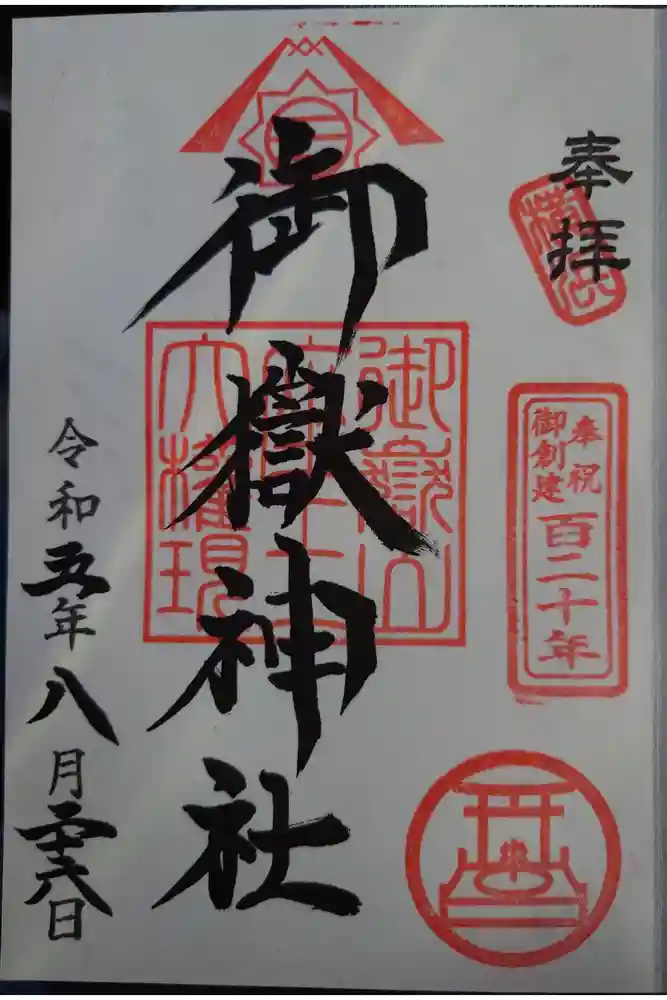 奉拝
奉祝
御創建
百二十年
御嶽神社
御嶽山
大權現
令和五年八月二十六日